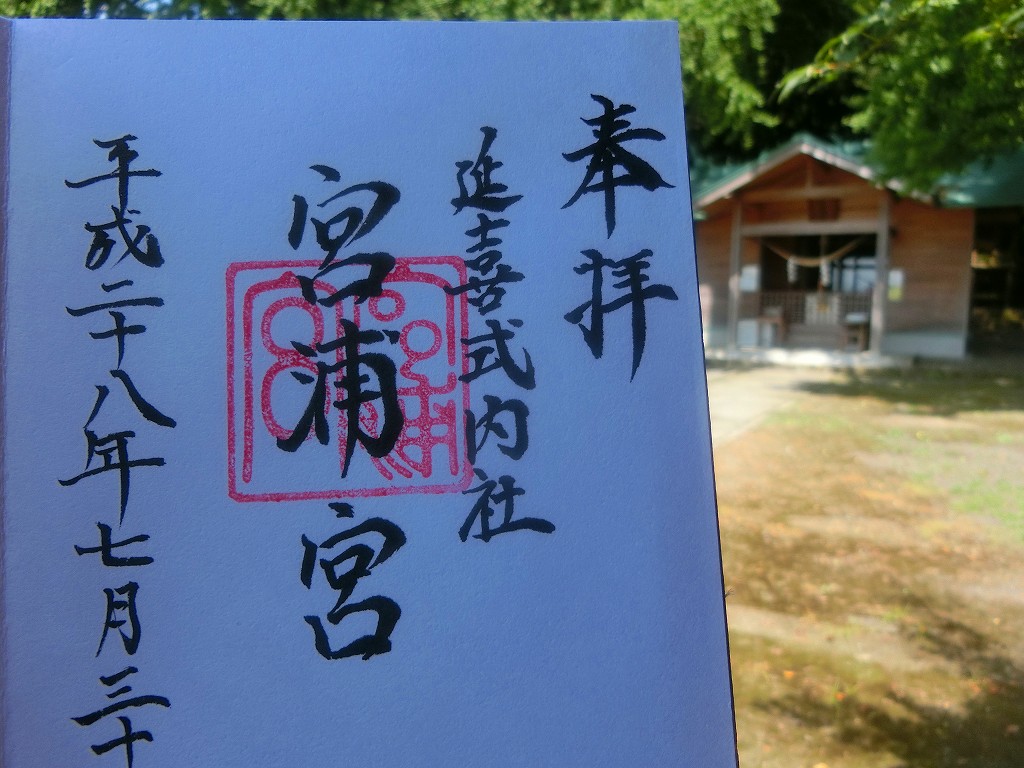 奉拝
延喜式内社
宮浦宮
平成二十八年七月三十